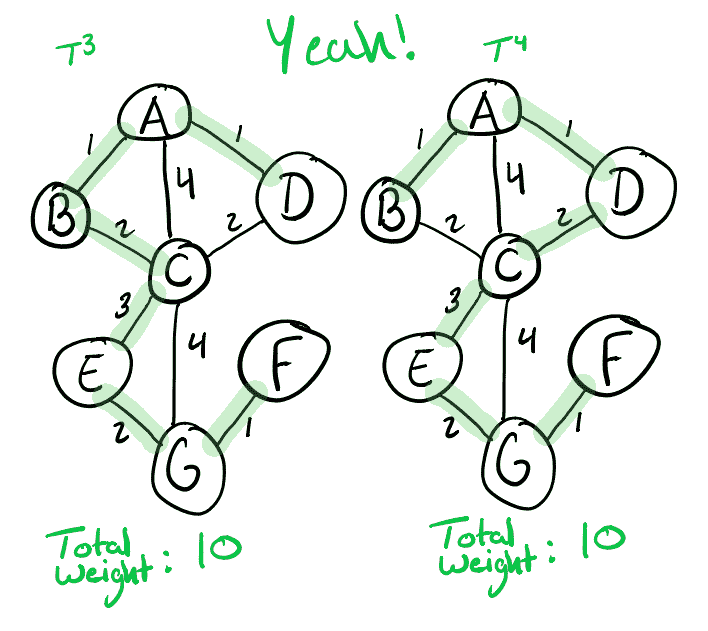 T³ Yeah! T⁴
A
1 1
4
B D
2 2
C
3
4
E F
2 1
G
Total
weight: 10
A
1 1
4
B D
2 2
C
3
4
E F
2 1
G
Total
weight: 10